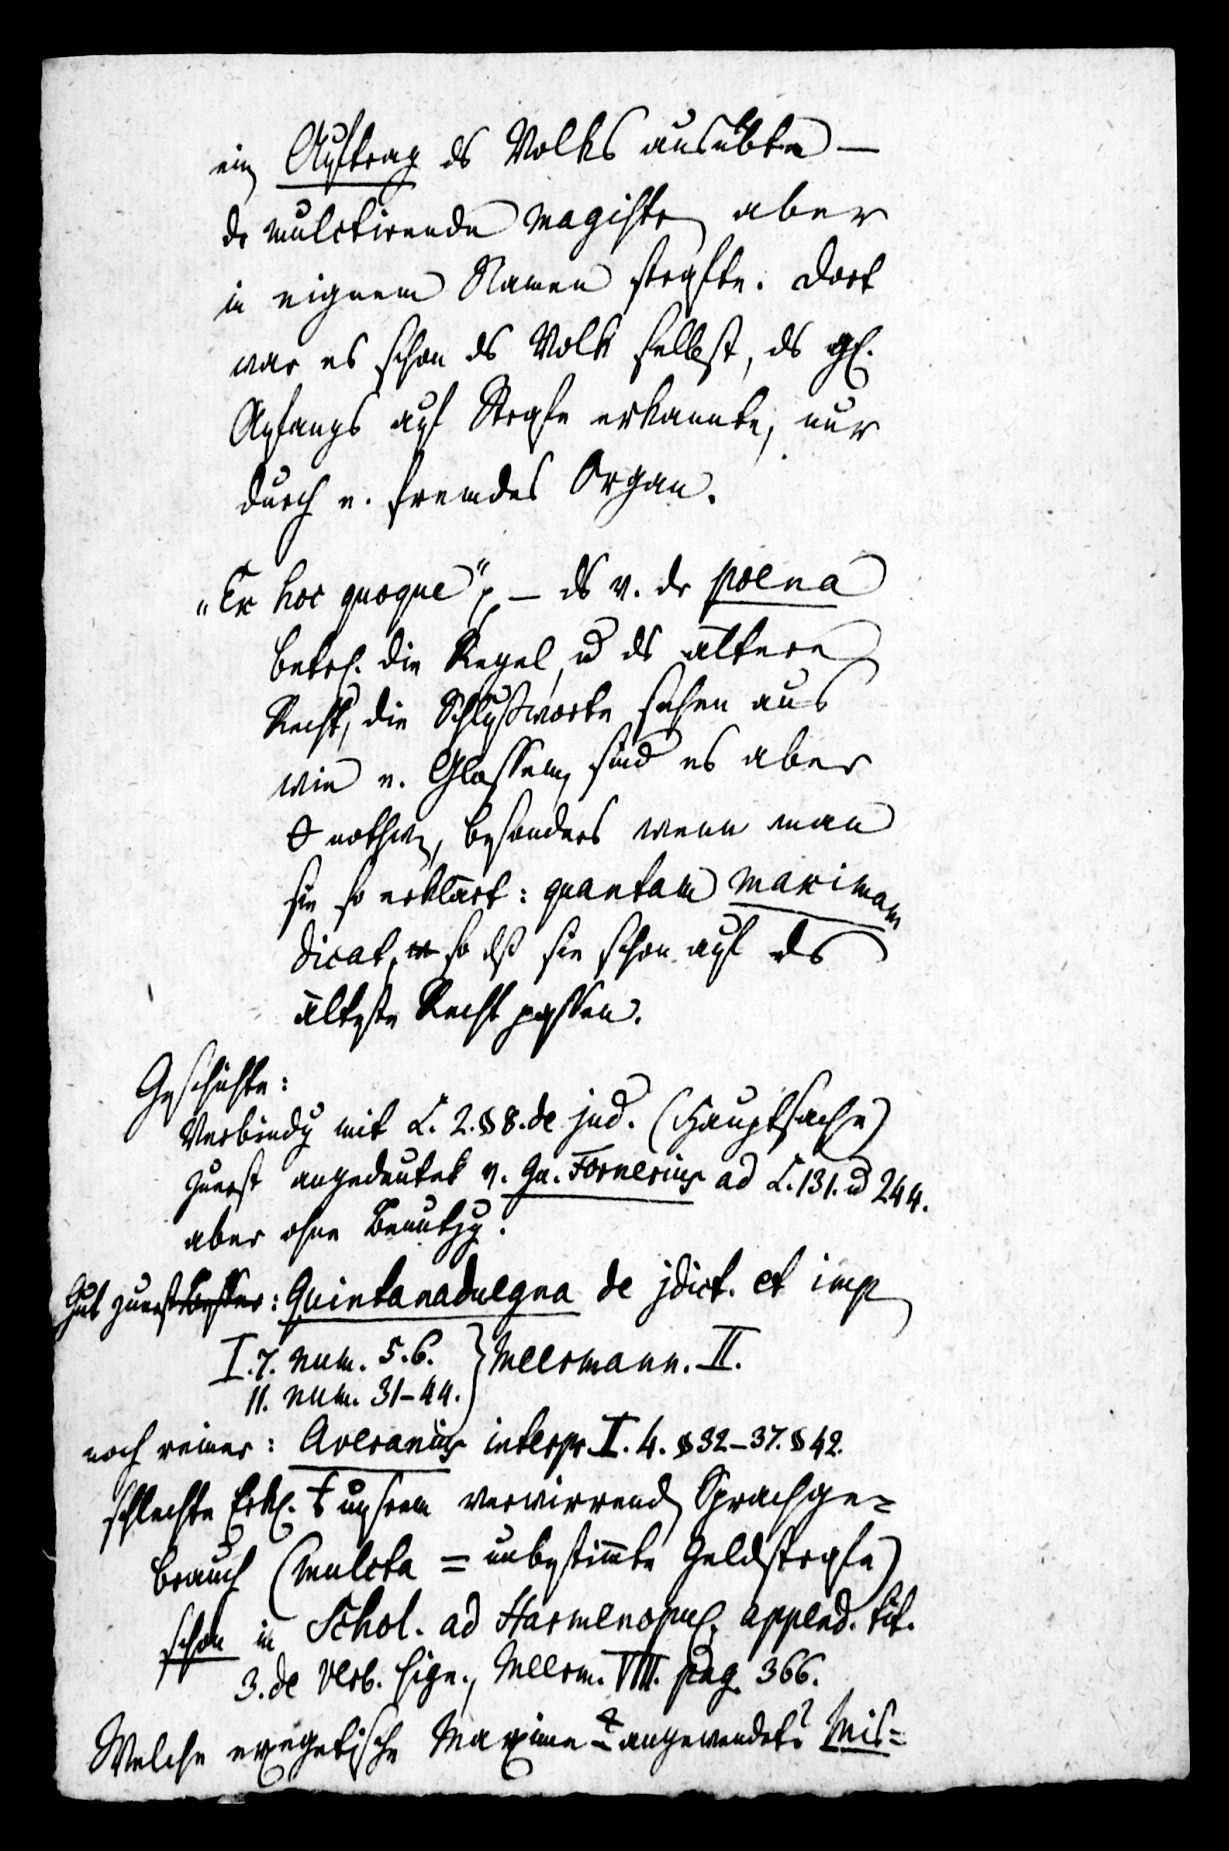 ein Auftrag ds Volks ausübte —
dr mulctirende Magistr aber
in eignem Namen strafte. Dort
war es schon ds Volk selbst, ds gl.
Anfangs auf Strafe erkannte, nur
durch e. fremdes Organ.
„Ex hoc quoque“ — ds v. dr poena
betrf. die Regel, u ds ältere
Recht, die Schlußworte sehen aus
wie e. Glossem, sind es aber
nothw, besonders wenn man
sie so erklärt: quantam maximam
dicat, so dß sie schon auf ds
älteste Recht passen.
Geschichte:
Verbindg mit L. 2. § 8. de jud. (Hauptsache)
zuerst angedeutet v. Gu. Fornerius ad L. 131. u 244.
aber ohne Benutzg.
Gut zuerst: Quintanaduegna de jdict. et imp
I. 7. num. 5. 6. } Meermann. II.
11. num. 31–44.
noch reiner: Averanius interpr. I. 4. § 32–37. § 42.
schlechte Erkl. unsrem verwirrend Sprachge=
brauch (mulcta = unbestimte Geldstrafe)
schon in Schol. ad Harmenopul. append. tit.
3. de verb. sign., Meerm. VIII. pag. 366.
Welche exegetische Maxime angewendet? Mis=